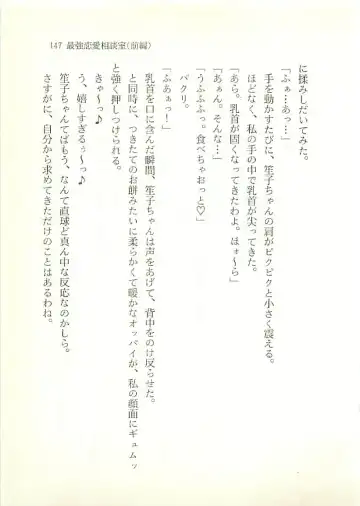 147 最強恋愛相談室(前編)
に揉みしだいてみた。
「ふぁ…あっ…」
手を動かすたびに、笙子ちゃんの肩がピクピクと小さく震える。
ほどなく、私の手の中で乳首が尖ってきた。
「あら。乳首が固くなってきたわよ。ほぉ〜ら」
「あぁん。そんな…」
「うふふふっ。食べちゃおっと♡」
パクリ。
「ふあぁっ！」
乳首を口に含んだ瞬間、笙子ちゃんは声をあげて、背中をのけ反らせた。
と同時に、つきたてのお餅みたいに柔らかくて暖かなオッパイが、私の顔面にギュムッ
と強く押しつけられる。
きゃ〜っ♪
う、嬉しすぎるぅ〜っ♪
笙子ちゃんてばもう、なんて直球ど真ん中な反応なのかしら。
さすがに、自分から求めてきただけのことはあるわね。